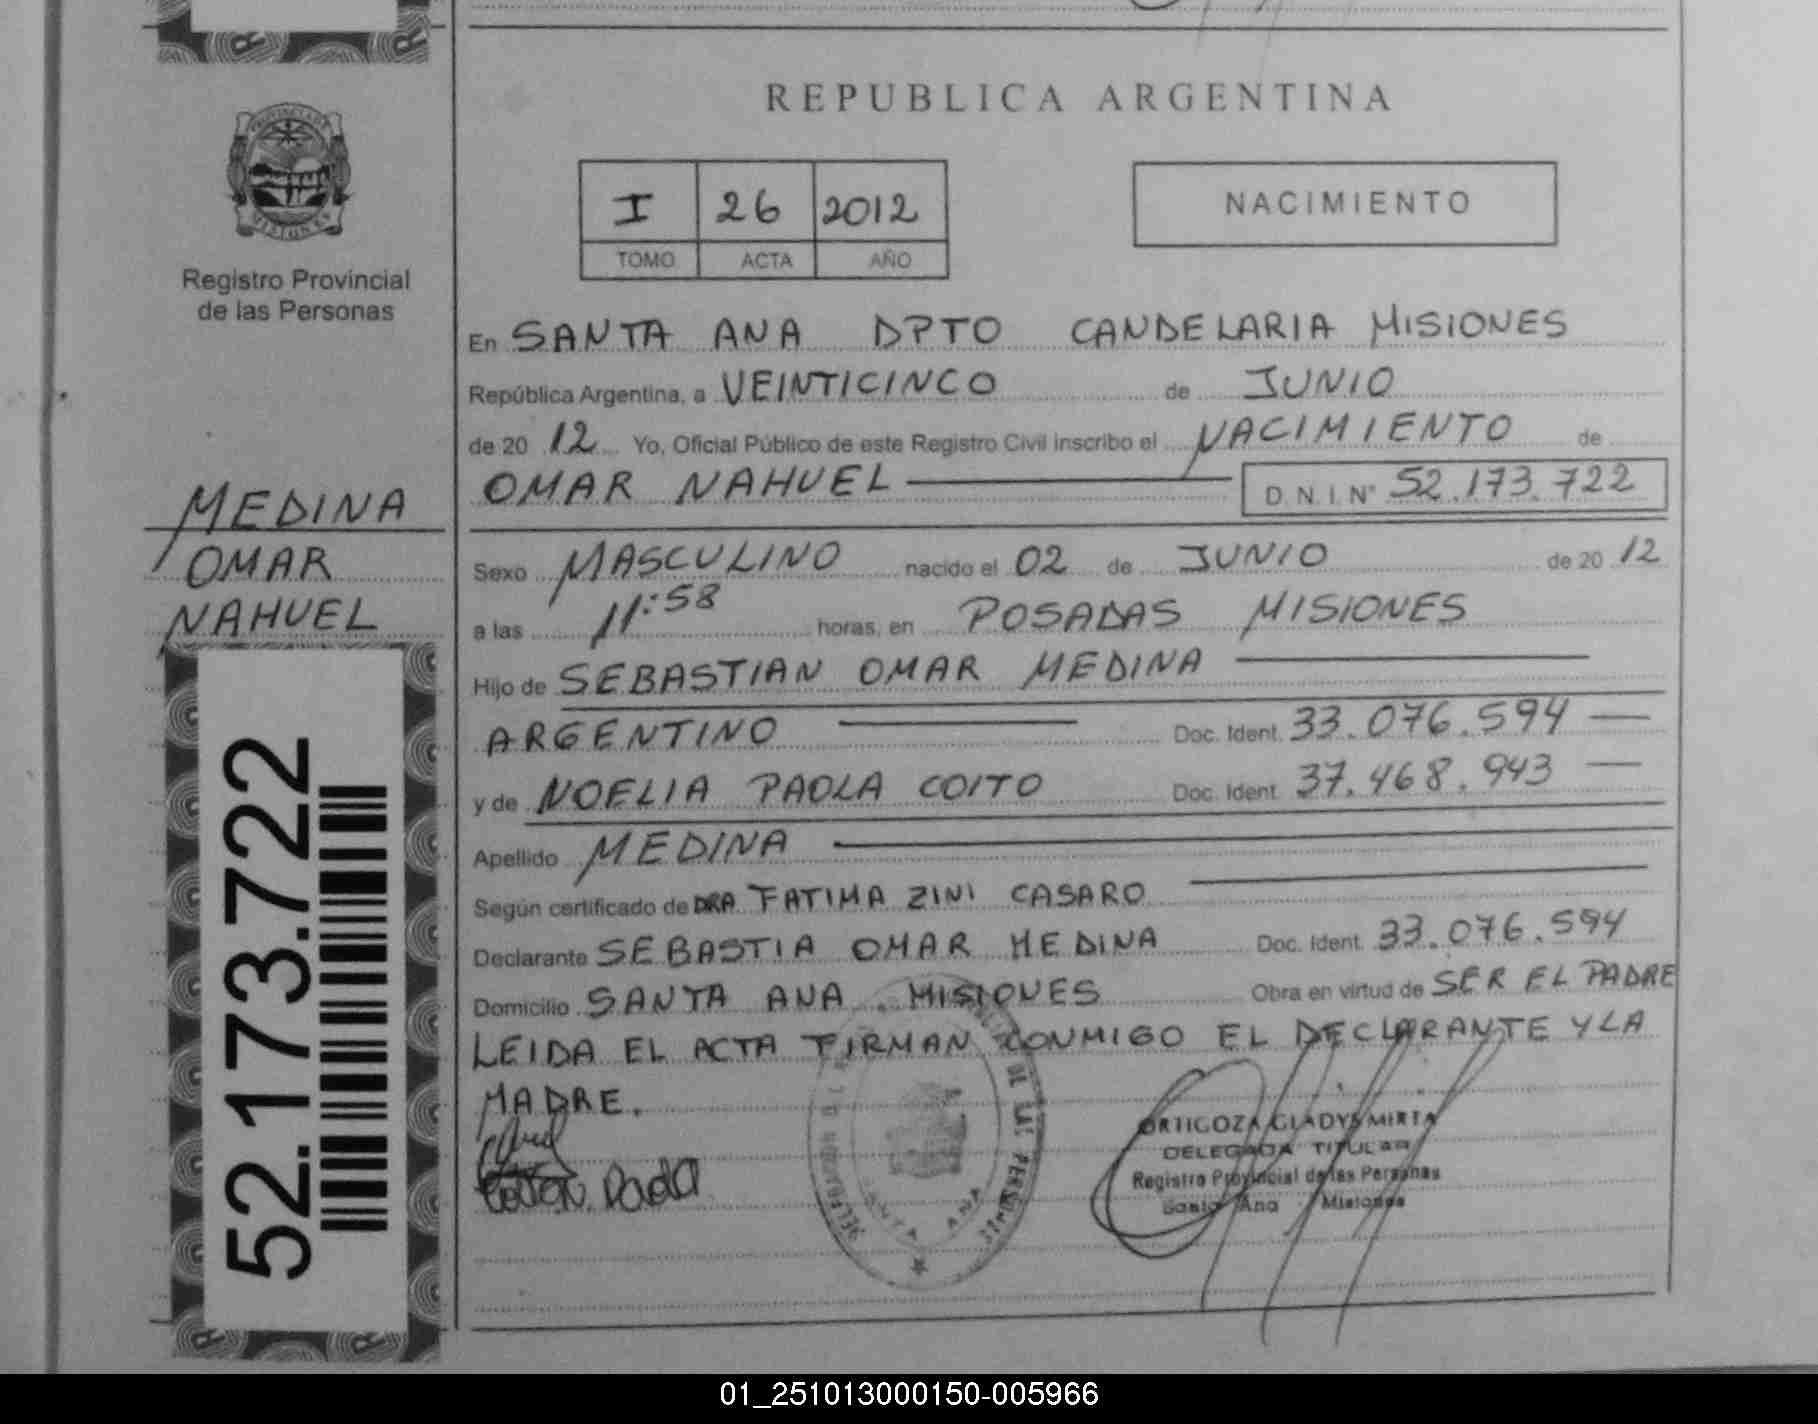 REPUBLICA ARGENTINA
PROVINCIA DE
MISIONES
Registro Provincial
de las Personas
I 26 2012
TOMO ACTA AÑO
NACIMIENTO
En SANTA ANA DPTO CANDELARIA MISIONES
República Argentina, a VEINTICINCO de JUNIO
de 20 12 Yo, Oficial Público de este Registro Civil inscribo el NACIMIENTO de
OMAR NAHUEL D.N.I. N° 52.173.722
MEDINA
OMAR
NAHUEL
Sexo MASCULINO nacido el 02 de JUNIO de 20 12
a las 11:58 horas, en POSADAS MISIONES
Hijo de SEBASTIAN OMAR MEDINA
ARGENTINO Doc. Ident. 33.076.594
y de NOELIA PAOLA COITO Doc. Ident. 37.468.943
Apellido MEDINA
Según certificado de DRA FATIMA ZINI CASARO
Declarante SEBASTIA OMAR MEDINA Doc. Ident. 33.076.594
Domicilio SANTA ANA. MISIONES Obra en virtud de SER EL PADRE
LEIDA EL ACTA FIRMAN CONMIGO EL DECLARANTE Y LA
MADRE.
52.173.722
DE LAS PERSONAS
SANTA ANA
ORTIGOZA GLADYS MIRTA
DELEGADA TITULAR
Registro Provincial de las Personas
Santa Ana Misiones
01_251013000150-005966